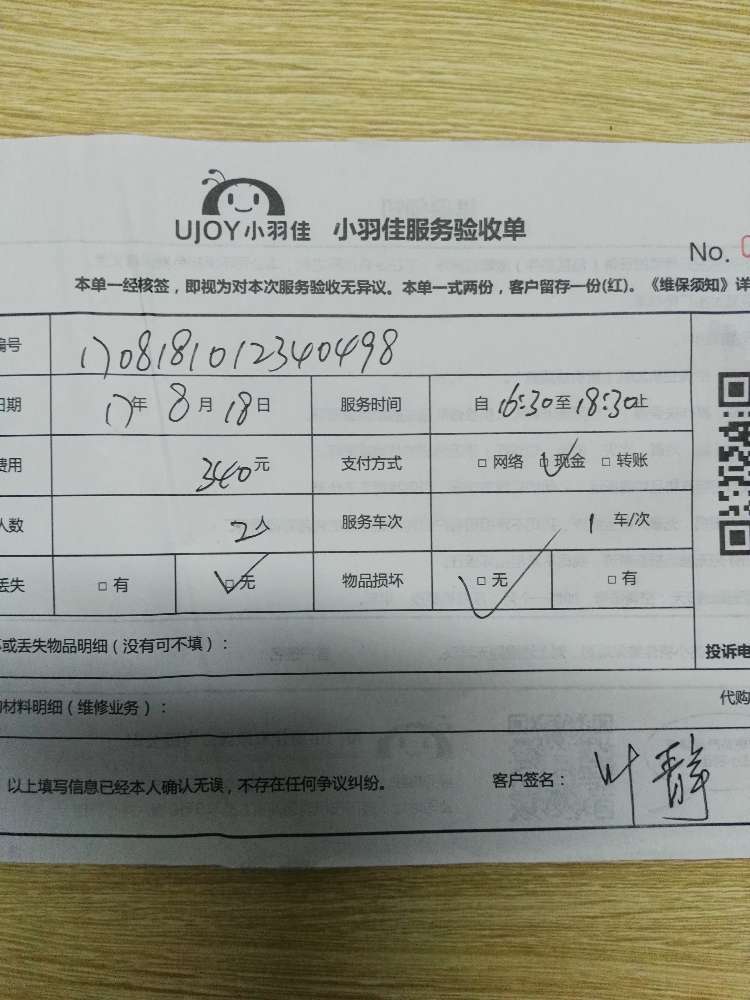 UJOY小羽佳 小羽佳服务验收单
No. 0
本单一经核签，即视为对本次服务验收无异议。本单一式两份，客户留存一份(红)。《维保须知》详
编号 1708181012340498
日期 17年 8月 18日 服务时间 自 16:30至18:30止
费用 340元 支付方式 □ 网络 □ 现金 □ 转账
人数 2人 服务车次 1 车/次
丢失 □ 有 □ 无 物品损坏 □ 无 □ 有
或丢失物品明细（没有可不填）：
投诉电
材料明细（维修业务）：
代购
以上填写信息已经本人确认无误，不存在任何争议纠纷。 客户签名： 叶静